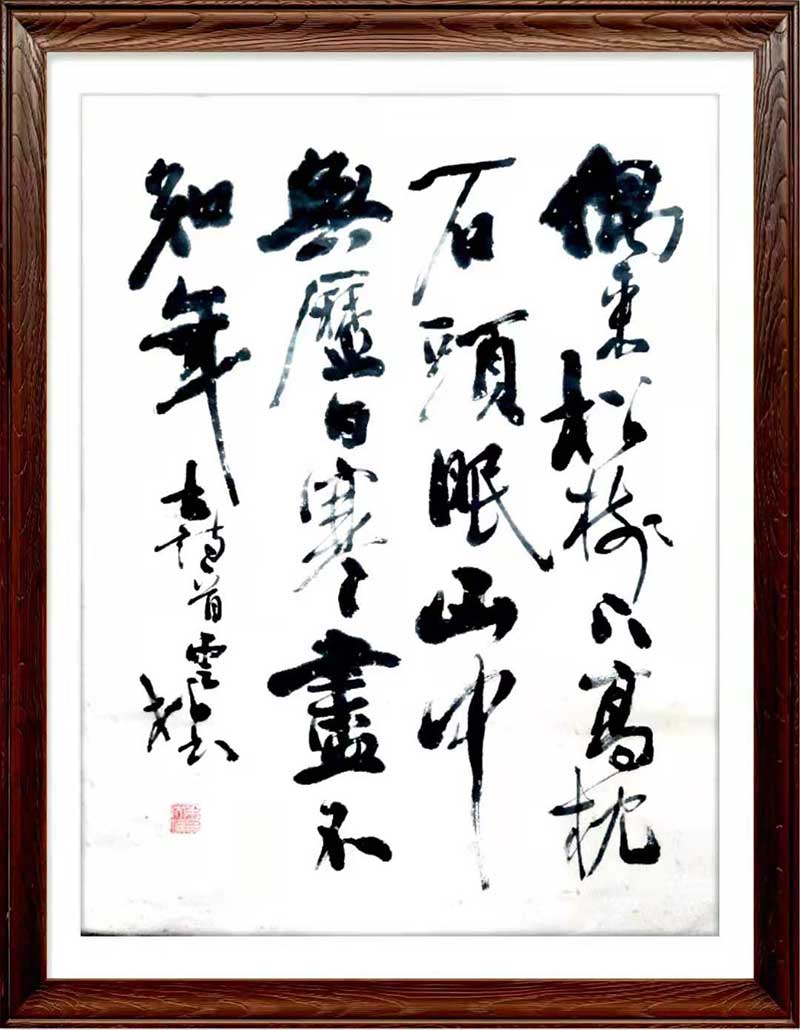 偶來松樹下高枕
石頭眠山中
無歷日寒盡不
知年 古詩首雲